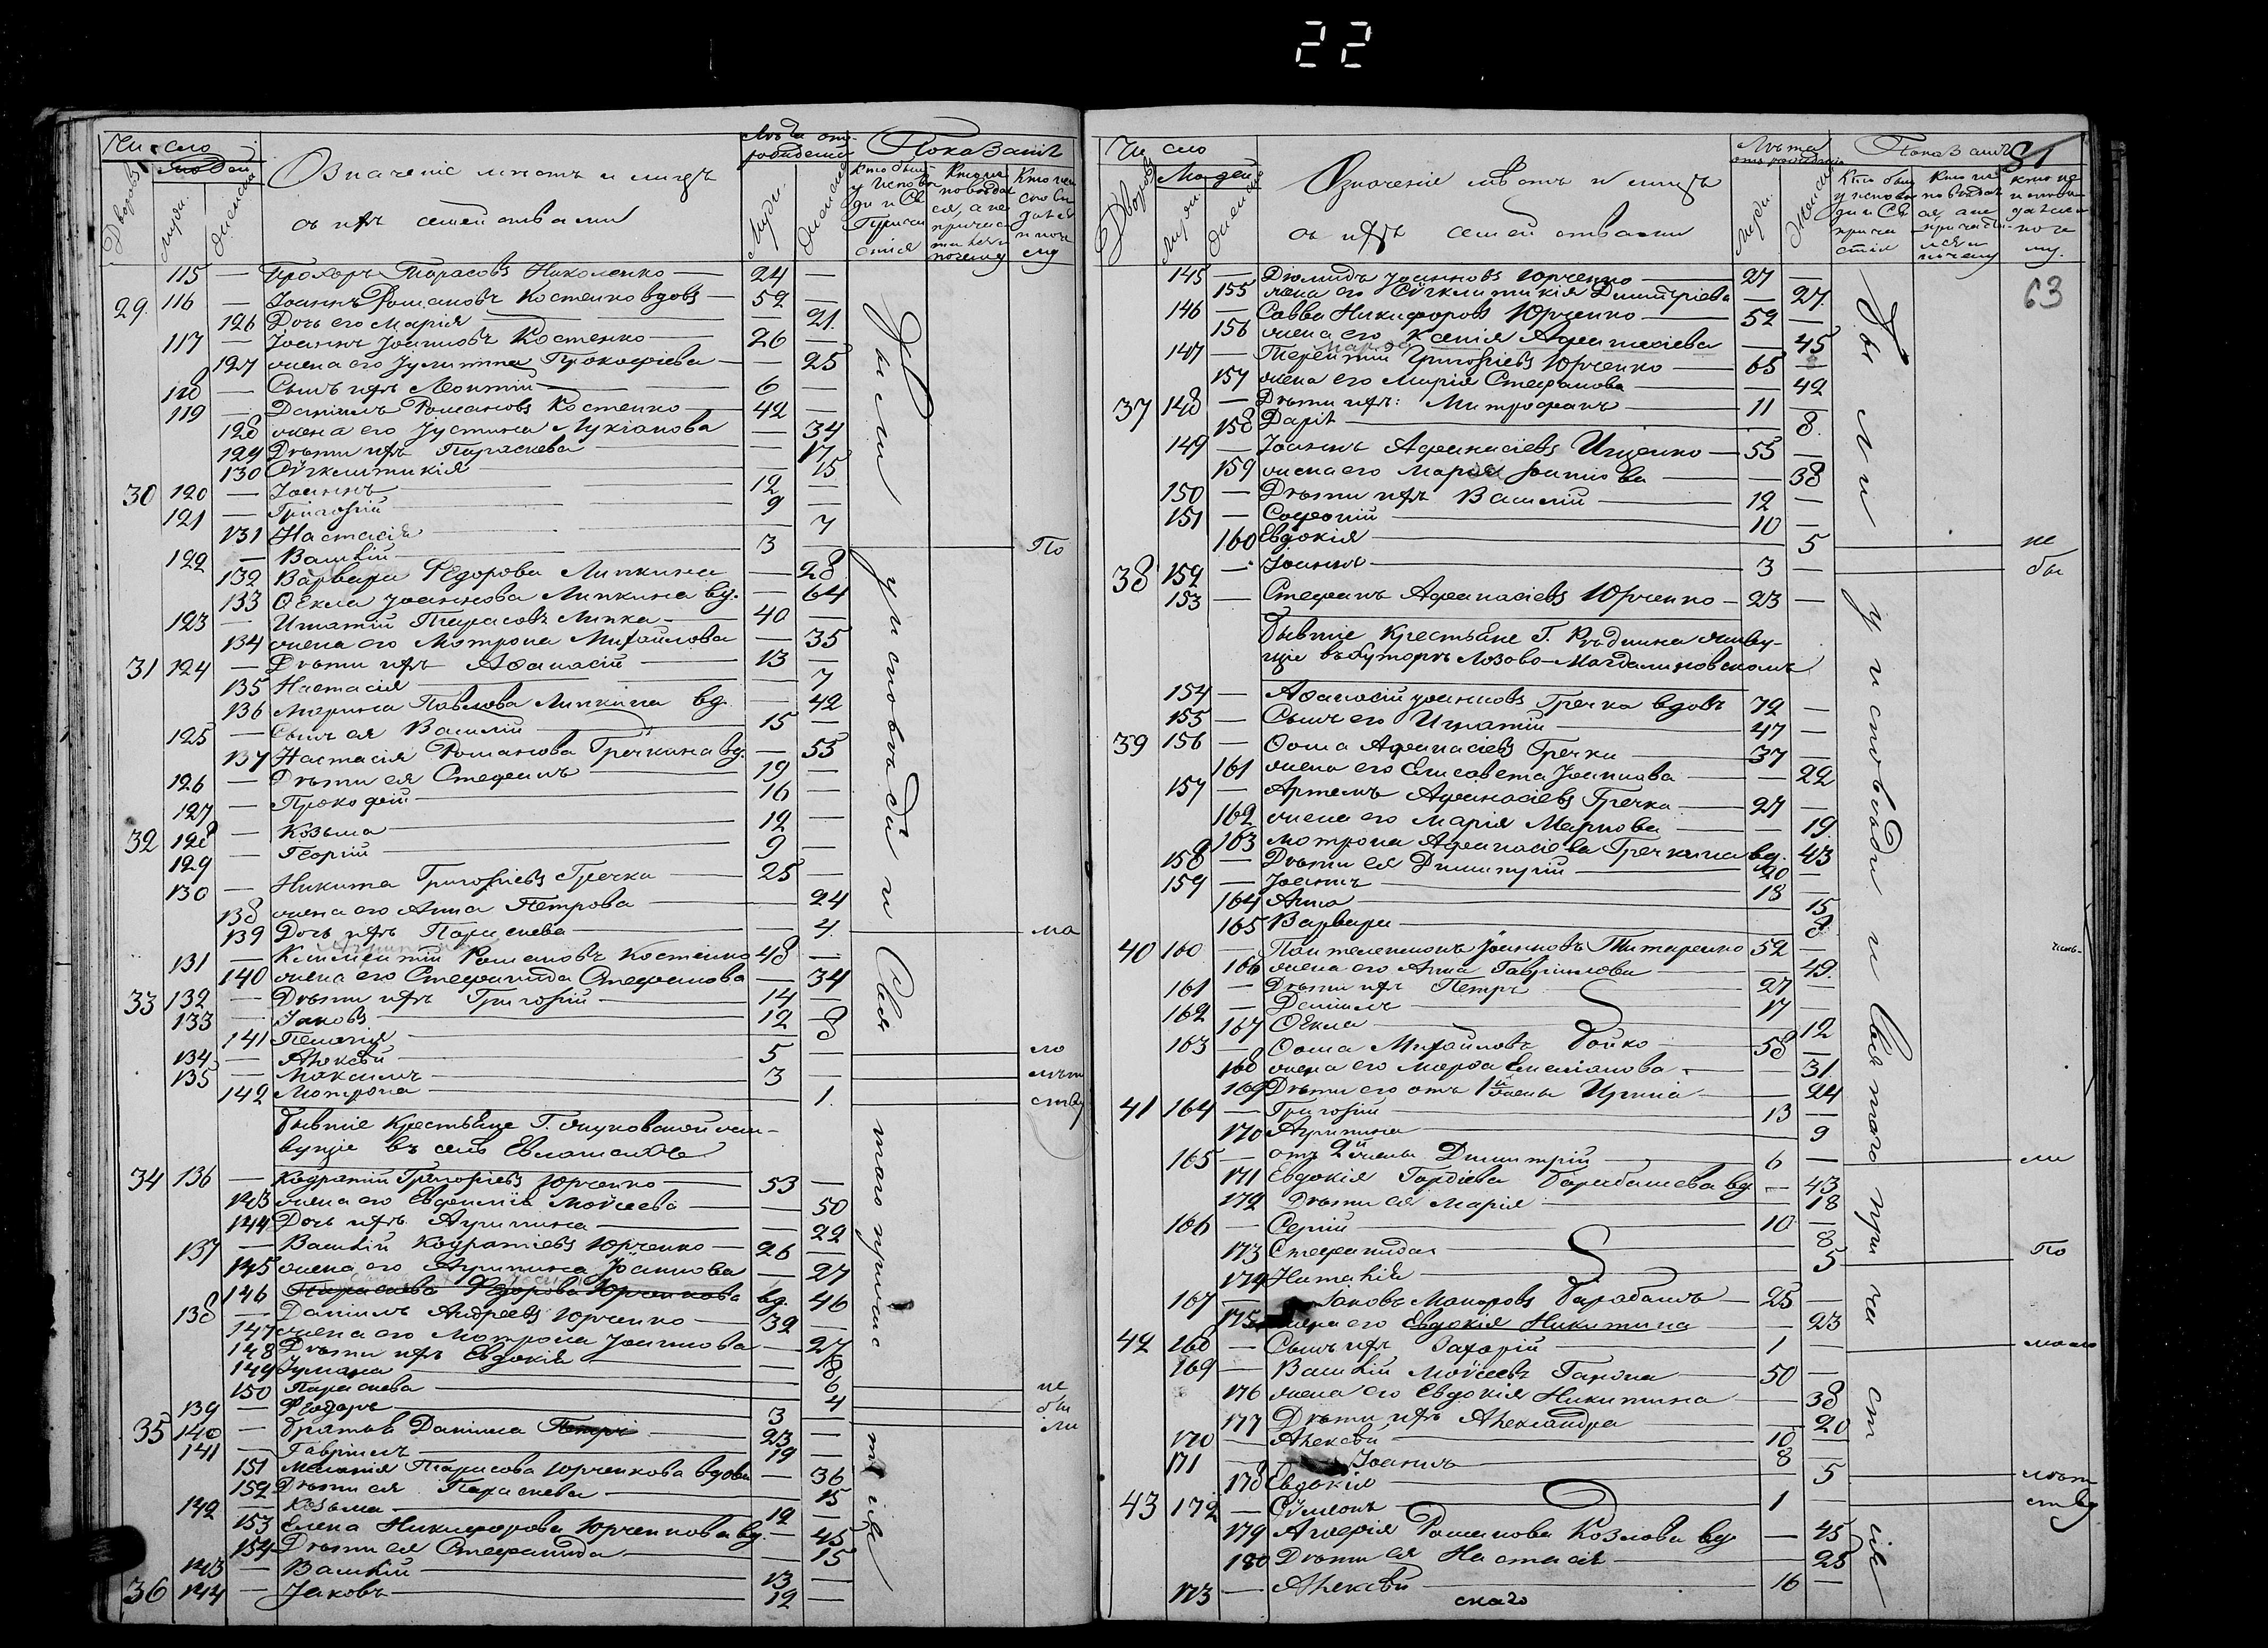 22
Число
Людей
Дворовъ
Мужи.
Женска
Означеніе мѣстъ и лицъ
съ ихъ семействами
Лѣта отъ рожденія
Мужи.
Женска
Показаніе
115 — Прохоръ Тарасовъ Николенко — 24 —
29. 116 — Іоаннъ Романовъ Костенко вдовъ — 52 —
126 Дочь его Марія — 21.
117 — Іоаннъ Іоанновъ Костенко — 26 —
127 жена его Іулитта Прокофіева — 25
118 — Сынъ ихъ Леонтій — 6 —
119 — Даніилъ Романовъ Костенко — 42 —
128 жена его Іустина Лукіанова — 34
129 Дѣти ихъ Параскева — 17
130 Сѵгклитикія — 15
30 120 — Іоаннъ — 12 —
121 — Григорій — 9 —
131 Настасія — 7
122 — Василій — 3 — По
132 Варвара Федорова Липкина — 28
133 Ѳекла Іоаннова Липкина вд. — 64
123 — Игнатій Тарасовъ Липка — 40 —
134 жена его Мотрона Михайлова — 35
31 124 — Дѣти ихъ Аѳанасій — 13 —
135 Настасія — 7
136 Марина Павлова Липкина вд. — 42
125 — Сынъ ея Василій — 15 —
137 Настасія Романова Гречкина вд. — 55
126 — Дѣти ея Стефанъ — 19 —
127 — Прокофій — 16 —
32 128 — Козьма — 12 —
129 — Георгій — 9 —
130 — Никита Григорьевъ Гречка — 25 —
138 жена его Анна Петрова — 24
139 Дочь ихъ Параскева — 4. ма
131 — Климентій Романовъ Костенко 48 —
140 жена его Стефанида Стефанова — 34
33 132 — Дѣти ихъ Григорій — 14 —
133 — Іаковъ — 12 —
141 Пелагія — 8
134 — Алексѣй — 5 — ло
135 — Максимъ — 3 — лѣт
142 Мотрона — 1. ству
Бывшіе Крестьяне Г. Жуковской жи-
вущіе въ селѣ
34 136 — Кодратій Григорьевъ Юрченко — 53 —
143 жена его Евдокія Моѵсеева — 50
144 Дочь ихъ Агрипина — 22
137 — Василій Кодратіевъ Юрченко — 26 —
145 жена его Агрипина Іоаннова — 27
146 Параскева Федорова Юрченкова вд. 46
138 — Даніилъ Андреевъ Юрченко — 32 —
147 жена его Мотрона Іоаннова — 27
148 Дѣти ихъ Евдокія — 8
149 Іуліана — 6
150 Параскева — 4 не
139 — Федоръ — 3 — бы
35 140 — Братья Даніила Петръ — 23 — ли
141 — Гавріилъ — 19 —
151 Меланія Тарасова Юрченкова вдова — 36
152 Дѣти ея Параскева — 15
142 — Козьма — 12 —
153 Елена Никифорова Юрченкова вд. — 45
154 Дѣти ея Стефанида — 15
143 — Василій — 13 —
36 144 — Іаковъ — 12 —
Были у исповѣди и Святаго причастія
Число
Людей
Дворовъ
Мужи.
Женска
Означеніе мѣстъ и лицъ
съ ихъ семействами
Лѣта отъ рожденія
Мужи.
Женска
Показаніе
81
63
145 — Діомидъ Іоанновъ Юрченко — 27 —
155 жена его Сѵгклитикія Димитріева — 27.
146 — Савва Никифоровъ Юрченко — 52 —
156 жена его Ксенія Афанасіева — 45
147 — Терентій Григорьевъ Юрченко — 65 —
157 жена его Марія Стефанова — 42
37 148 — Дѣти ихъ: Митрофанъ — 11 —
158 Дарія — 8.
149 — Іоаннъ Афанасіевъ Ищенко — 55 —
159 жена его Марія Іоаннова — 38
150 — Дѣти ихъ Василій — 12 —
151 — Софоній — 10 —
160 Евдокія — 5 не
38 152 — Іоаннъ — 3 — бы
153 — Стефанъ Афанасіевъ Юрченко — 23 —
Бывшіе Крестьяне Г. Рѣдкина живу-
щіе въ хуторѣ Лозово-Магдалиновскомъ
154 — Аѳанасій Іоанновъ Гречка вдовъ 72 —
155 — Сынъ его Игнатій — 47 —
39 156 — Ѳома Афанасіевъ Гречка — 37 —
161 жена его Елисавета Іоаннова — 22
157 — Артемъ Афанасіевъ Гречка — 27 —
162 жена его Марія Маркова — 19.
163 Мотрона Афанасіева Гречкина вд. 43
158 — Дѣти ея Димитрій — 20 —
159 — Іоаннъ — 18 —
164 Анна — 15
165 Варвара — 8
40 160 — Пантелеимонъ Іоанновъ Титаренко 52 —
166 жена его Анна Гавріилова — 49.
161 — Дѣти ихъ Петръ — 27 —
162 — Даніилъ — 17 —
167 Ѳекла — 12
163 — Ѳома Михайловъ Бойко — 58 —
168 жена его Марѳа Емеліанова — 31.
169 Дѣти его отъ 1й жены Ирина — 24
41 164 — Григорій — 13 —
170 Агрипина — 9
165 — отъ 2й жены Димитрій — 6 — ли
171 Евдокія Гордѣева Барабашева вд. — 43
172 Дѣти ея Марія — 18
166 — Сергій — 10 —
173 Стефанида — 8
174 Наталія — 5 По
167 — Іаковъ Макаровъ Барабашъ — 25 —
175 жена его Евдокія Никитина — 23
42 168 — Сынъ ихъ Захарій — 1 — мало
169 — Василій Моѵсеевъ Гапона — 50 —
176 жена его Евдокія Никитина — 38
177 Дѣти ихъ Александра — 20
170 — Алексѣй — 10 —
171 — Іоаннъ — 8 —
178 Евдокія — 5 лѣт
43 172 — Сѵмеонъ — 1 — ству
179 Гликерія Романова Козлова вд. — 45
180 Дѣти ея Настасія — 25
173 — Алексѣй — 16 —
скаго
Были у исповѣди и Святаго причастія